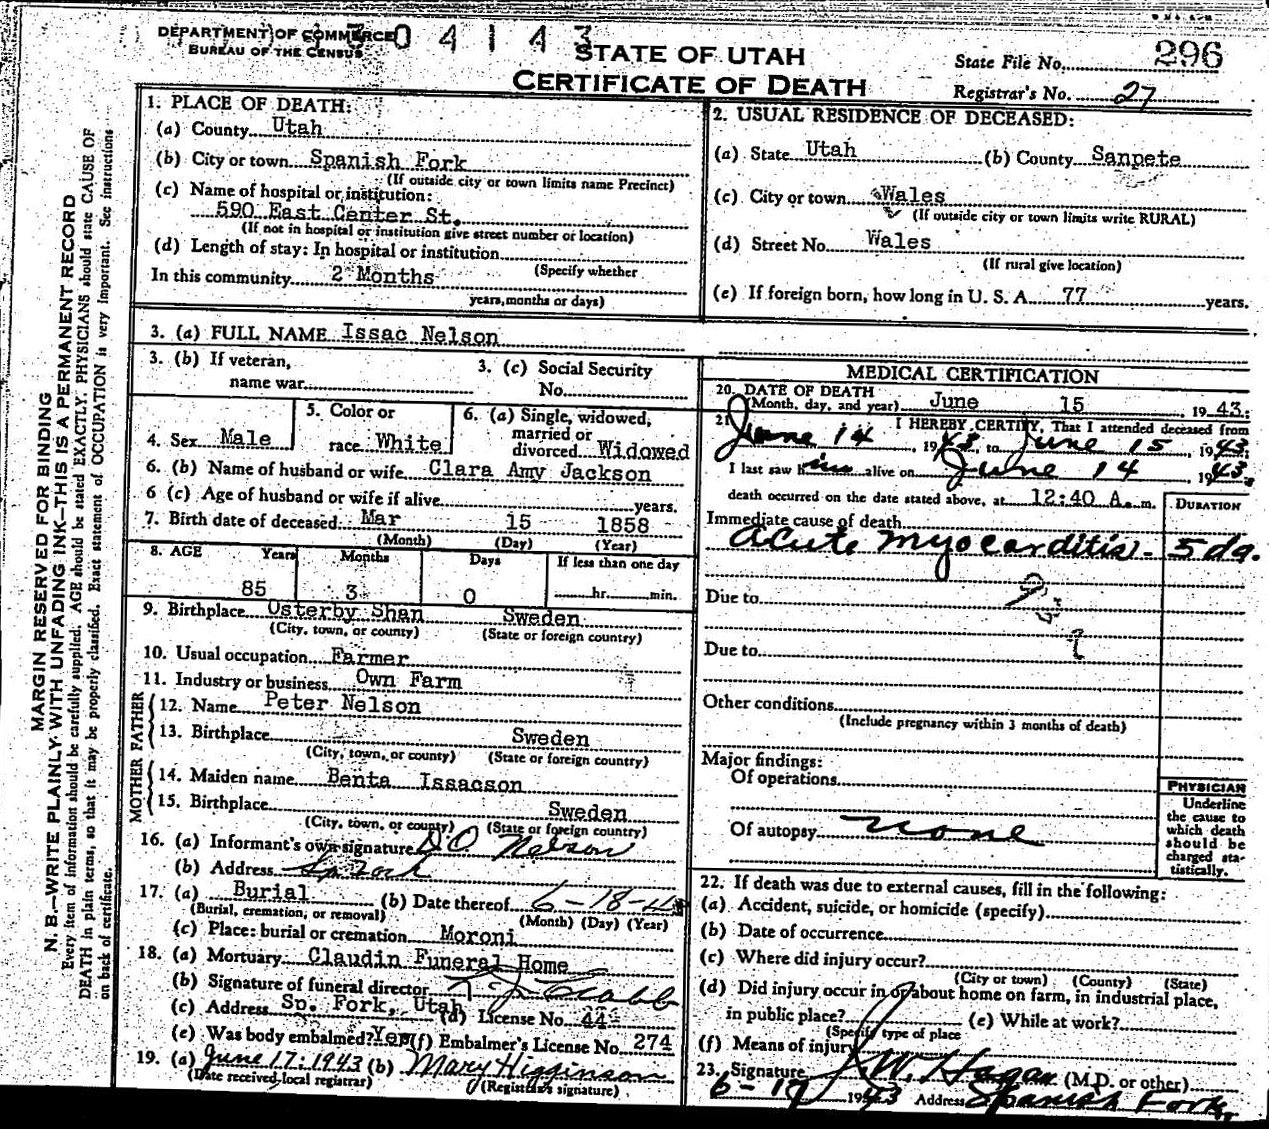 DEPARTMENT OF COMMERCE
BUREAU OF THE CENSUS
0 4 1 4 3
STATE OF UTAH
CERTIFICATE OF DEATH
State File No. 296
Registrar's No. 27
MARGIN RESERVED FOR BINDING
N. B.—WRITE PLAINLY, WITH UNFADING INK—THIS IS A PERMANENT RECORD
Every item of information should be carefully supplied. AGE should be stated EXACTLY. PHYSICIANS should state CAUSE OF
DEATH in plain terms, so that it may be properly classified. Exact statement of OCCUPATION is very important. See instructions
on back of certificate.
1. PLACE OF DEATH:
(a) County Utah
(b) City or town Spanish Fork
(If outside city or town limits name Precinct)
(c) Name of hospital or institution:
590 East Center St.
(If not in hospital or institution give street number or location)
(d) Length of stay: In hospital or institution
(Specify whether
In this community 2 Months
years, months or days)
2. USUAL RESIDENCE OF DECEASED:
(a) State Utah (b) County Sanpete
(c) City or town Wales
(If outside city or town limits write RURAL)
(d) Street No. Wales
(If rural give location)
(e) If foreign born, how long in U. S. A. 77 years.
3. (a) FULL NAME Issac Nelson
3. (b) If veteran,
name war
3. (c) Social Security
No.
4. Sex Male
5. Color or
race White
6. (a) Single, widowed,
married or
divorced Widowed
6. (b) Name of husband or wife Clara Amy Jackson
6 (c) Age of husband or wife if alive years.
7. Birth date of deceased Mar 15 1858
(Month) (Day) (Year)
8. AGE Years Months Days If less than one day
85 3 0 hr. min.
9. Birthplace Osterby Shan Sweden
(City, town, or county) (State or foreign country)
10. Usual occupation Farmer
11. Industry or business Own Farm
FATHER
12. Name Peter Nelson
13. Birthplace Sweden
(City, town, or county) (State or foreign country)
MOTHER
14. Maiden name Benta Issacson
15. Birthplace Sweden
(City, town, or county) (State or foreign country)
16. (a) Informant's own signature D.O Nelson
(b) Address Sp. Fork
17. (a) Burial (b) Date thereof 6-18-43
(Burial, cremation, or removal) (Month) (Day) (Year)
(c) Place: burial or cremation Moroni
18. (a) Mortuary Claudin Funeral Home
(b) Signature of funeral director
(c) Address Sp. Fork, Utah (d) License No. 44
(e) Was body embalmed? Yes (f) Embalmer's License No. 274
19. (a) June 17: 1943 (b) Mary Higginson
(Date received local registrar) (Registrar's signature)
MEDICAL CERTIFICATION
20. DATE OF DEATH
(Month, day, and year) June 15, 19 43.
21. I HEREBY CERTIFY, That I attended deceased from
June 14, 1943 to June 15, 1943.
I last saw him alive on June 14, 1943.
death occurred on the date stated above, at 12:40 A. m.
DURATION
Immediate cause of death
acute myocarditis - 5 da.
Due to
Due to
Other conditions
(Include pregnancy within 3 months of death)
Major findings:
Of operations
Of autopsy none
PHYSICIAN
Underline
the cause to
which death
should be
charged sta-
tistically.
22. If death was due to external causes, fill in the following:
(a) Accident, suicide, or homicide (specify)
(b) Date of occurrence
(c) Where did injury occur?
(City or town) (County) (State)
(d) Did injury occur in or about home on farm, in industrial place,
in public place? (e) While at work?
(Specify type of place
(f) Means of injury
23. Signature W. Hagan (M.D. or other)
6-17 1943 Address Spanish Fork